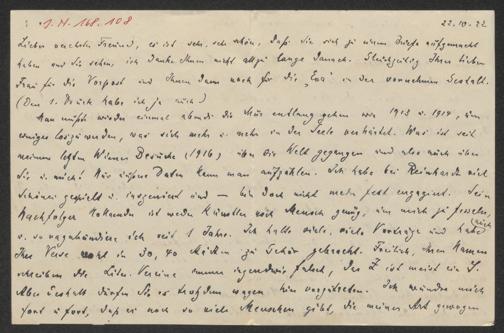 J. N. 168.108
22.10.22
Lieber verehrter Freund, es ist sehr, sehr schön, daß Sie sich zu einem Briefe aufgemacht
haben und Sie sehen, ich danke Ihnen nicht allzu lange danach. Gleichzeitig Ihrer lieben
Frau für die Vorpost und Ihnen dann noch für die „ in der vornehmen Gestalt.
(Den 1. Druck habe ich ja auch)
Man müßte wieder einmal abends die entlang gehen wie 1913 u. 1914, um
einiges loszuwerden, was sich mehr u. mehr in der Seele verkrustet. Was ist seit
meinem letzten Wiener Besuche (1916) über die Welt gegangen und also auch über
Sie u. mich! Nur äußere Daten kann man aufzählen. Ich habe bei Reinhardt viel
Schönes gespielt u. inszeniert und — bin doch nicht mehr fest engagiert. Sein
Nachfolger ist weder Künstler noch Mensch genug, um mich zu fesseln,
u. so vagabundiere ich seit 1 Jahre. Ich halte viele, viele Vorträge und habe
Ihre Verse in 30, 40 Städten zu Gehör gebracht. Freilich, Ihren Namen
schreiben die Vereine immer irgendwie falsch, das Z ist meist ein S.
Aber deshalb dürfen Sie es trotzdem wagen hin vorzutreten. Ich wundre mich
fort u. fort, daß es noch so viele Menschen gibt, die meiner Art gewogen